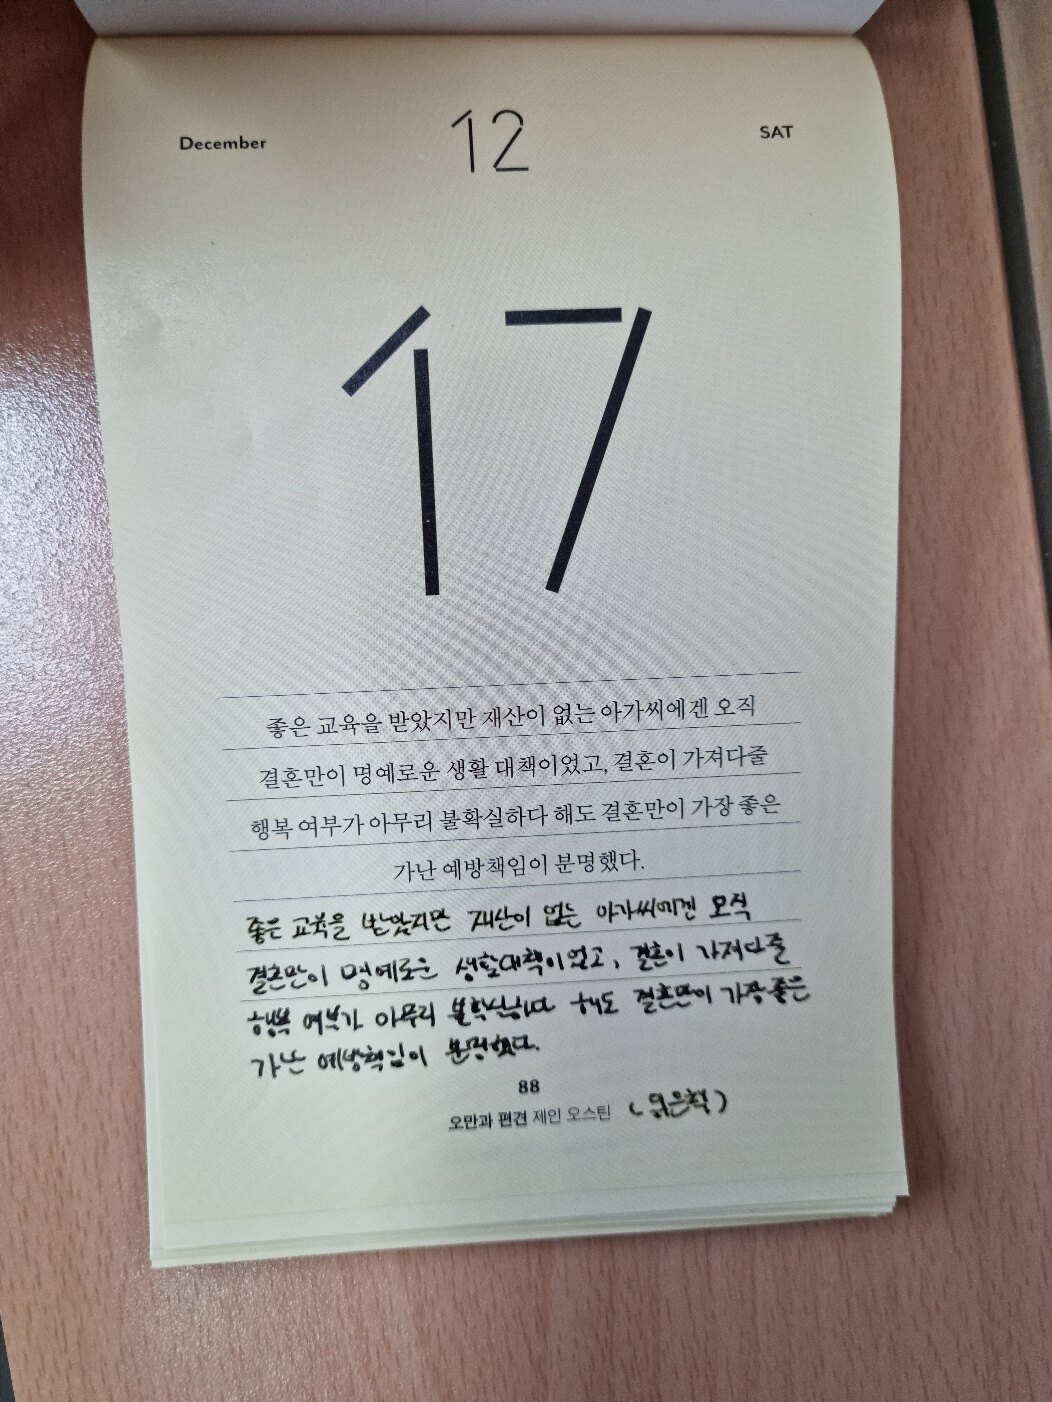 December 12 SAT
17
좋은 교육을 받았지만 재산이 없는 아가씨에겐 오직
결혼만이 명예로운 생활 대책이었고, 결혼이 가져다줄
행복 여부가 아무리 불확실하다 해도 결혼만이 가장 좋은
가난 예방책임이 분명했다.
좋은 교육을 받았지만 재산이 없는 아가씨에겐 오직
결혼만이 명예로운 생활대책이었고, 결혼이 가져다줄
행복 여부가 아무리 불확실하다 해도 결혼만이 가장 좋은
가난 예방책임이 분명했다.
88
오만과 편견 제인 오스틴